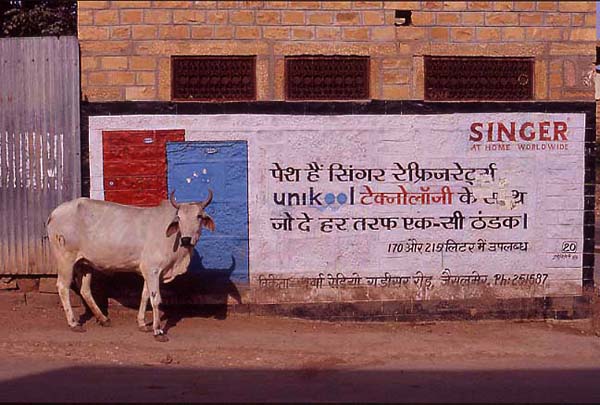 SINGER
AT HOME WORLDWIDE
पेश हैं सिंगर रेफ्रिजरेटर्स
unikool टेक्नोलॉजी के साथ
जो दे हर तरफ एक-सी ठंडक।
170 और 215 लिटर में उपलब्ध
20
रेडियो गडीसर रोड, जैसलमेर, Ph: 251687